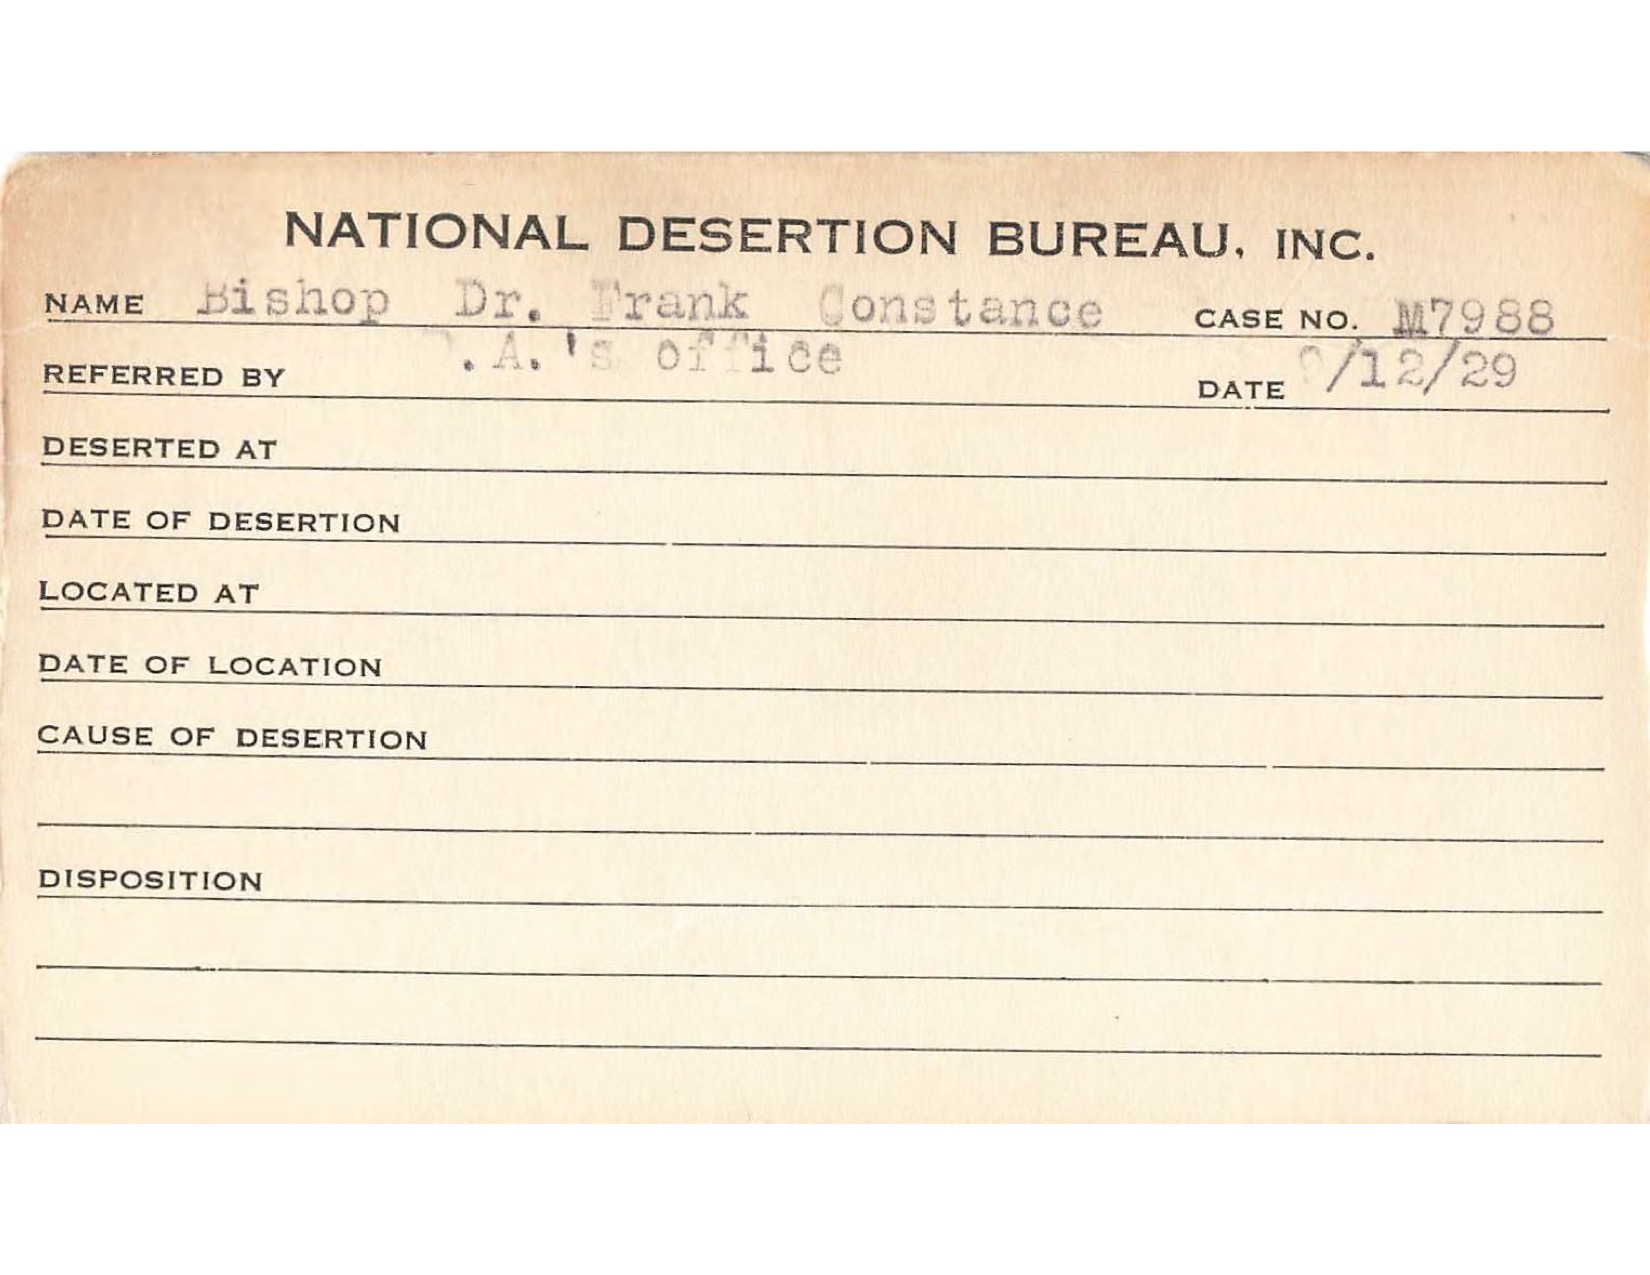 NATIONAL DESERTION BUREAU, INC.
NAME Bishop Dr. Frank Constance CASE NO. M7988
REFERRED BY D.A.'s office DATE 9/12/29
DESERTED AT
DATE OF DESERTION
LOCATED AT
DATE OF LOCATION
CAUSE OF DESERTION
DISPOSITION